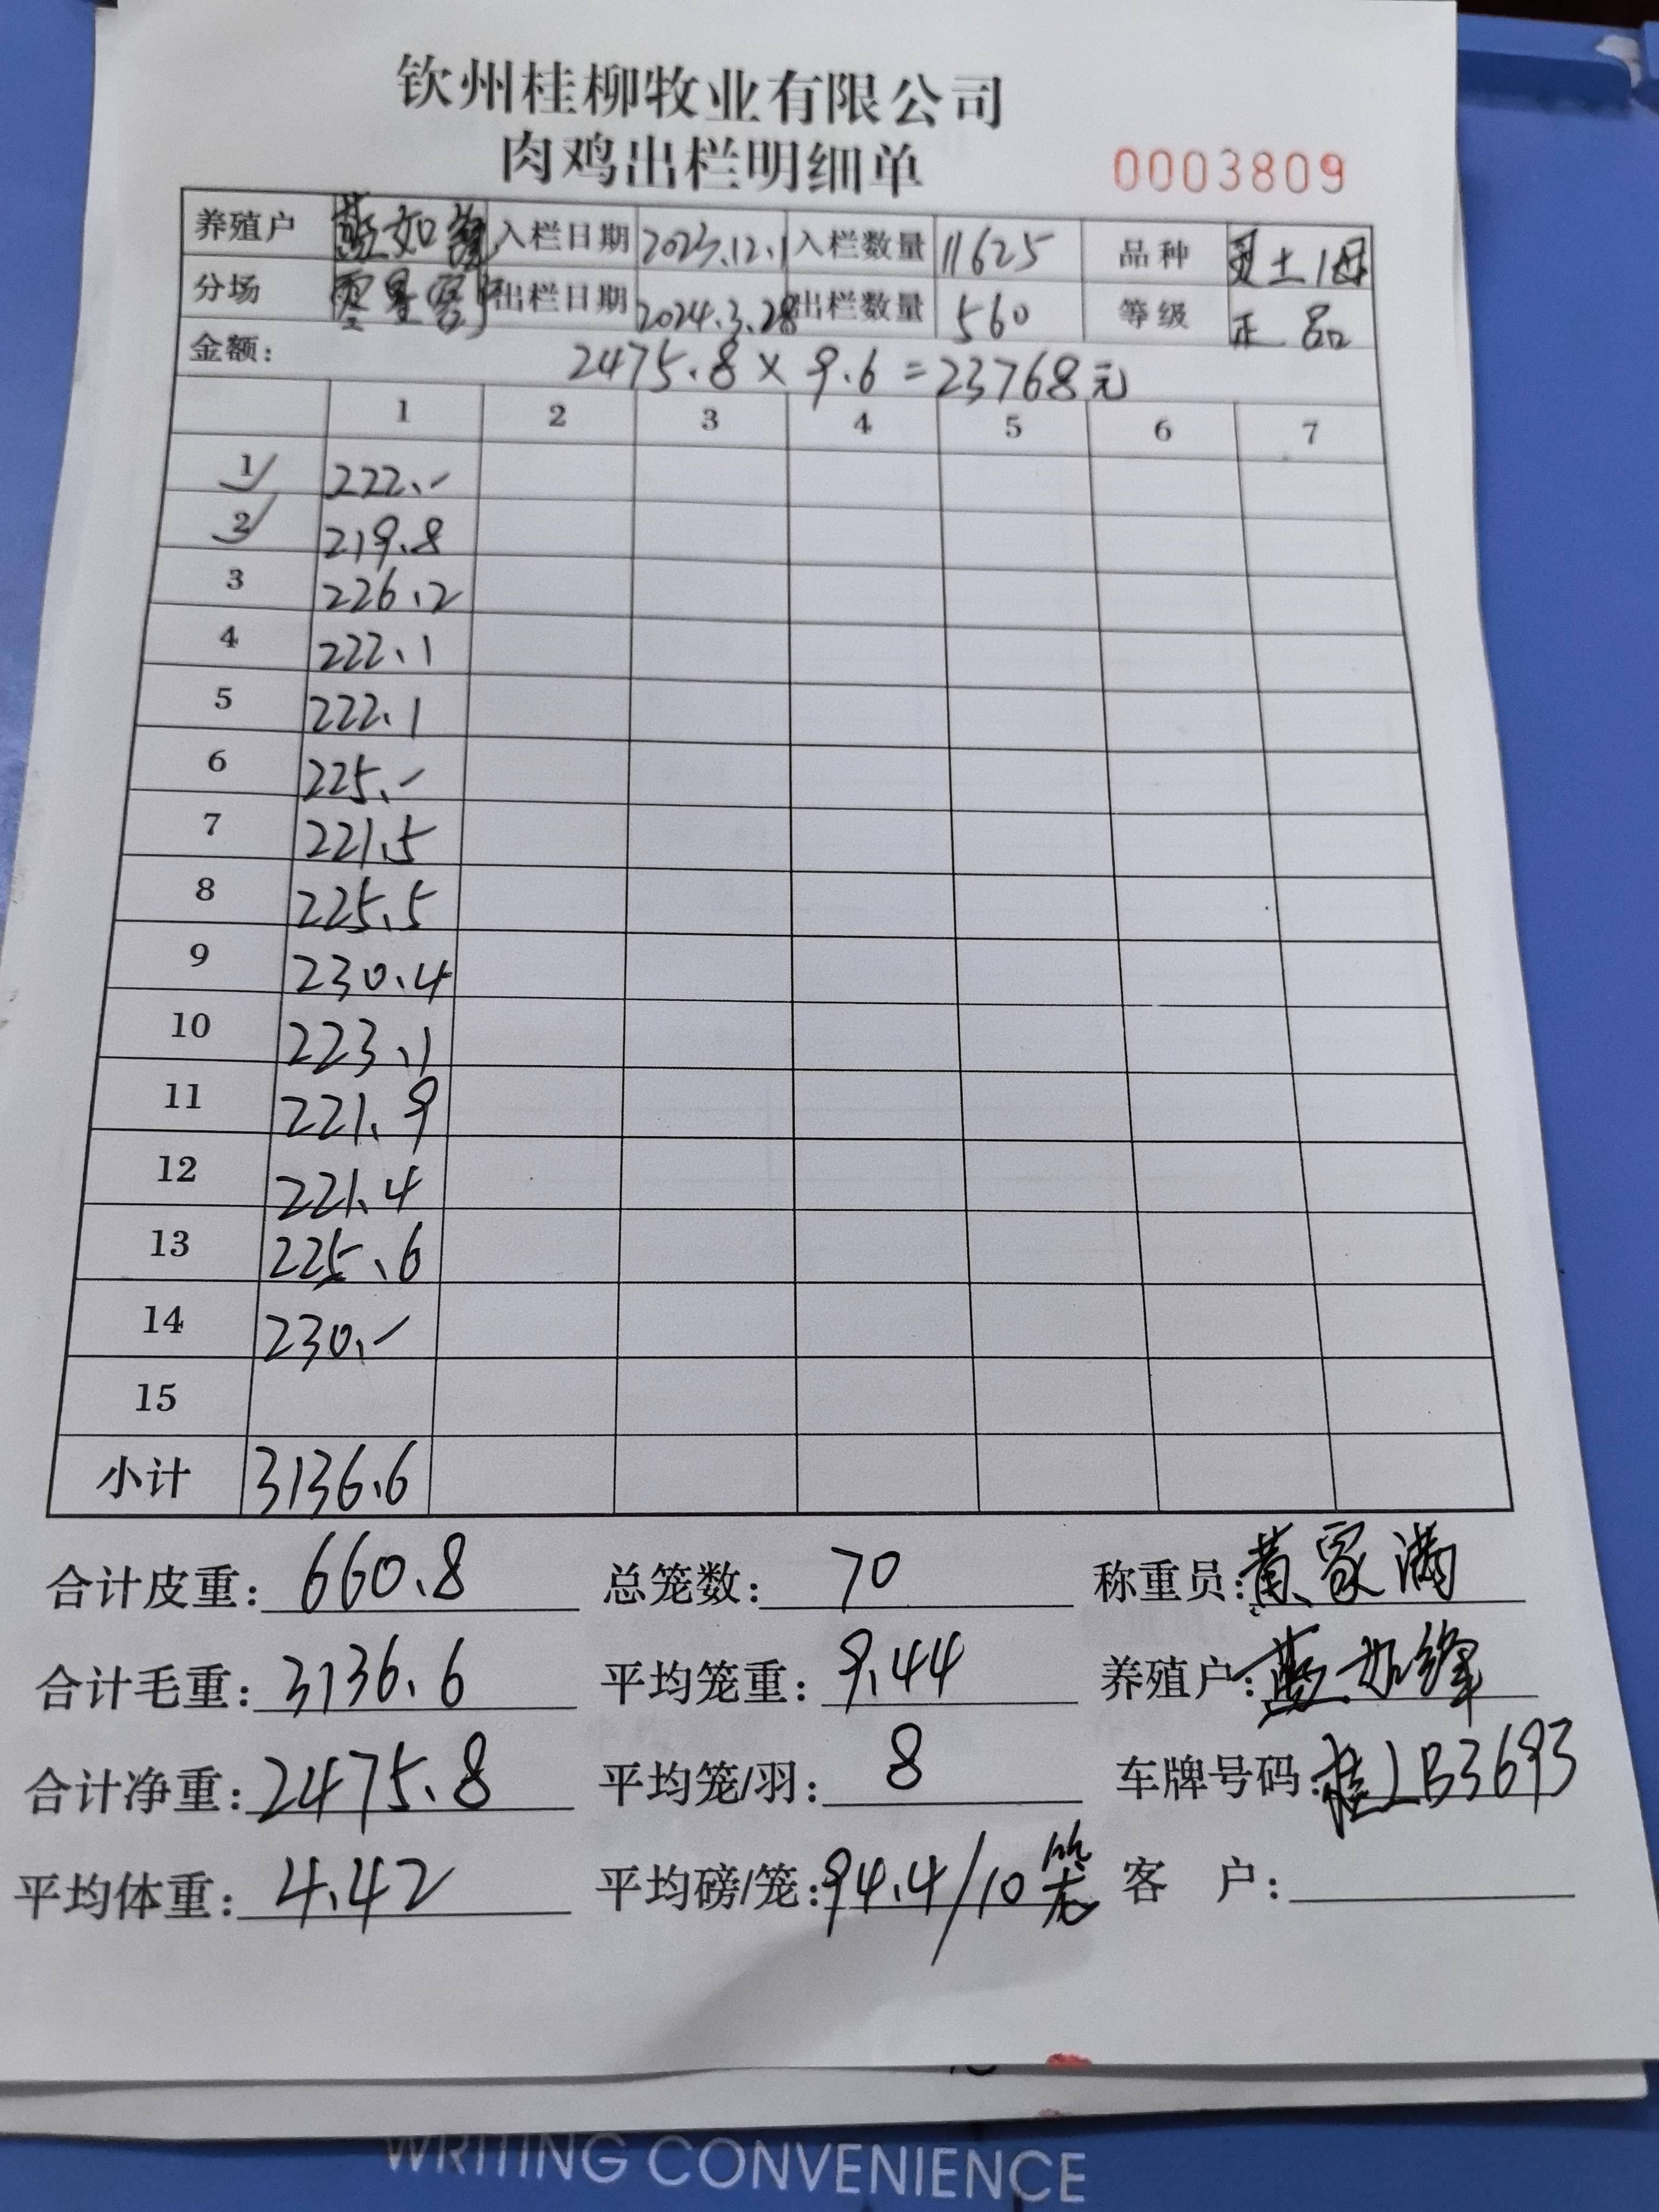 钦州桂柳牧业有限公司
肉鸡出栏明细单 0003809
养殖户 蓝如 入栏日期 2023.12.1 入栏数量 11625 品种 土1母
分场 零星 出栏日期 2024.3.28 出栏数量 560 等级 正品
金额: 2475.8 × 9.6 = 23768元
1 2 3 4 5 6 7
1 222.-
2 219.8
3 226.2
4 222.1
5 222.1
6 225.-
7 221.5
8 225.5
9 230.4
10 223.1
11 221.9
12 221.4
13 225.6
14 230.-
15
小计 3136.6
合计皮重: 660.8 总笼数: 70 称重员: 黄家满
合计毛重: 3136.6 平均笼重: 9.44 养殖户: 蓝如锋
合计净重: 2475.8 平均笼/羽: 8 车牌号码: 桂LB3693
平均体重: 4.42 平均磅/笼: 94.4/10笼 客 户:
WRITING CONVENIENCE